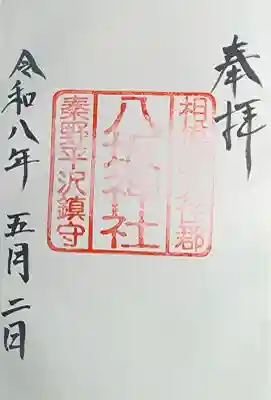 奉拝
相模住郡
八坂神社
秦野平沢鎮守
令和八年 五月二日